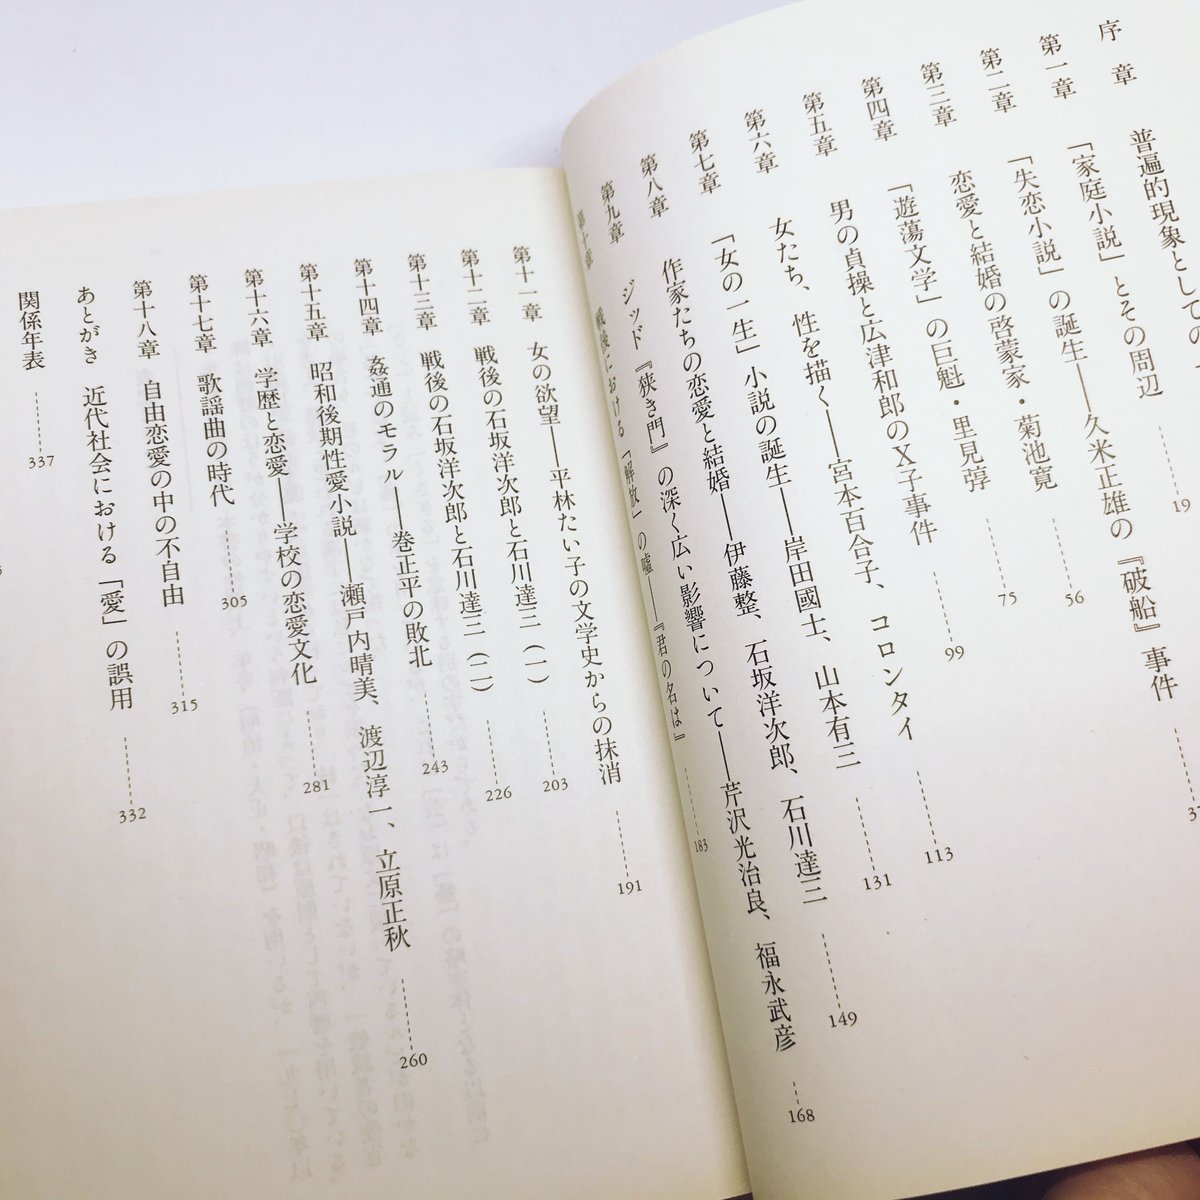 序章 普遍的現象としての
第一章 「家庭小説」とその周辺 19
第二章 「失恋小説」の誕生――久米正雄の『破船』事件 37
第三章 恋愛と結婚の啓蒙家・菊池寛 56
第四章 「遊蕩文学」の巨魁・里見弴 75
第五章 男の貞操と広津和郎のX子事件 99
第六章 女たち、性を描く――宮本百合子、コロンタイ 113
第七章 「女の一生」小説の誕生――岸田國士、山本有三 131
第八章 作家たちの恋愛と結婚――伊藤整、石坂洋次郎、石川達三 149
第九章 ジッド『狭き門』の深く広い影響について――芹沢光治良、福永武彦 168
第十章 戦後における「解放」の嘘――『君の名は』 183
第十一章 女の欲望――平林たい子の文学史からの抹消 191
第十二章 戦後の石坂洋次郎と石川達三(一) 203
第十三章 戦後の石坂洋次郎と石川達三(二) 226
第十四章 姦通のモラル――巻正平の敗北 243
第十五章 昭和後期性愛小説――瀬戸内晴美、渡辺淳一、立原正秋 260
第十六章 学歴と恋愛――学校の恋愛文化 281
第十七章 歌謡曲の時代 305
第十八章 自由恋愛の中の不自由 315
あとがき 近代社会における「愛」の誤用 332
関係年表 337